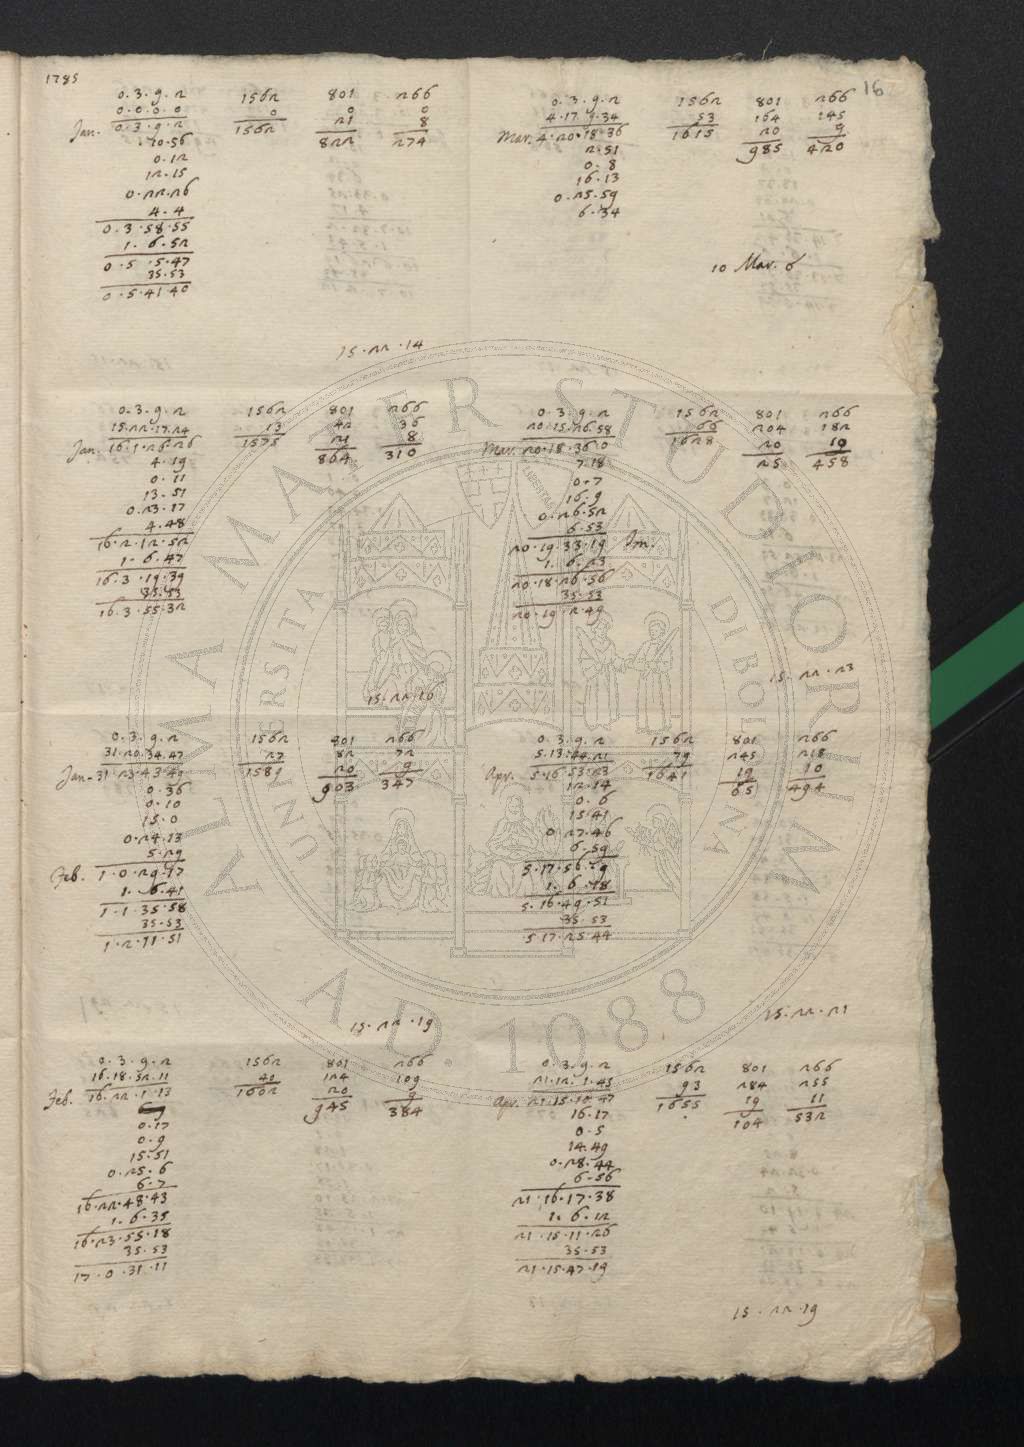 1785
16
0.3.9.2 1562 801 266
0.0.0.0 0 0 0
Jan. 0.3.9.2 1562 21 8
822 274
10.56
0.12
12.15
0.22.26
4.4
0.3.58.55
1.6.52
0.5.5.47
35.53
0.5.41.40
15.22.14
0.3.9.2 1562 801 266
15.22.17.24 13 42 36
Jan. 16.1.26.26 1575 21 8
864 310
4.19
0.11
13.51
0.23.17
4.48
16.2.12.52
1.6.47
16.3.19.39
35.53
16.3.55.32
15.22.16
0.3.9.2 1562 801 266
31.20.34.47 27 82 72
Jan. 31.23.43.49 1589 20 9
903 347
0.36
0.10
15.0
0.24.13
5.29
Feb. 1.0.29.17
1.6.41
1.1.35.58
35.53
1.2.11.51
15.22.19
0.3.9.2 1562 801 266
16.18.52.11 40 124 109
Feb. 16.22.1.13 1602 20 9
945 384
0.17
0.9
15.51
0.25.6
6.7
16.22.48.43
1.6.35
16.23.55.18
35.53
17.0.31.11
0.3.9.2 1562 801 266
4.17.9.34 53 164 145
Mar. 4.20.18.36 1615 20 9
985 420
2.51
0.8
16.13
0.25.59
6.34
10 Mar. 6
0.3.9.2 1562 801 266
20.15.26.58 66 204 182
Mar. 20.18.36.0 1628 20 10
25 458
7.18
0.7
16.9
0.26.52
6.53
20.19.33.19
1.6.23
20.18.26.56
35.53
20.19.2.49
15.22.23
0.3.9.2 1562 801 266
5.13.44.21 79 245 218
Apr. 5.16.53.23 1641 19 10
65 494
12.14
0.6
15.41
0.27.46
6.59
5.17.56.9
1.6.18
5.16.49.51
35.53
5.17.25.44
15.22.21
0.3.9.2 1562 801 266
21.12.1.45 93 284 255
Apr. 21.15.10.47 1655 19 11
104 532
16.17
0.5
14.49
0.28.44
6.56
21.16.17.38
1.6.12
21.15.11.26
35.53
21.15.47.19
15.22.19
ALMA MATER STUDIORUM
UNIVERSITÀ DI BOLOGNA
A.D. 1088